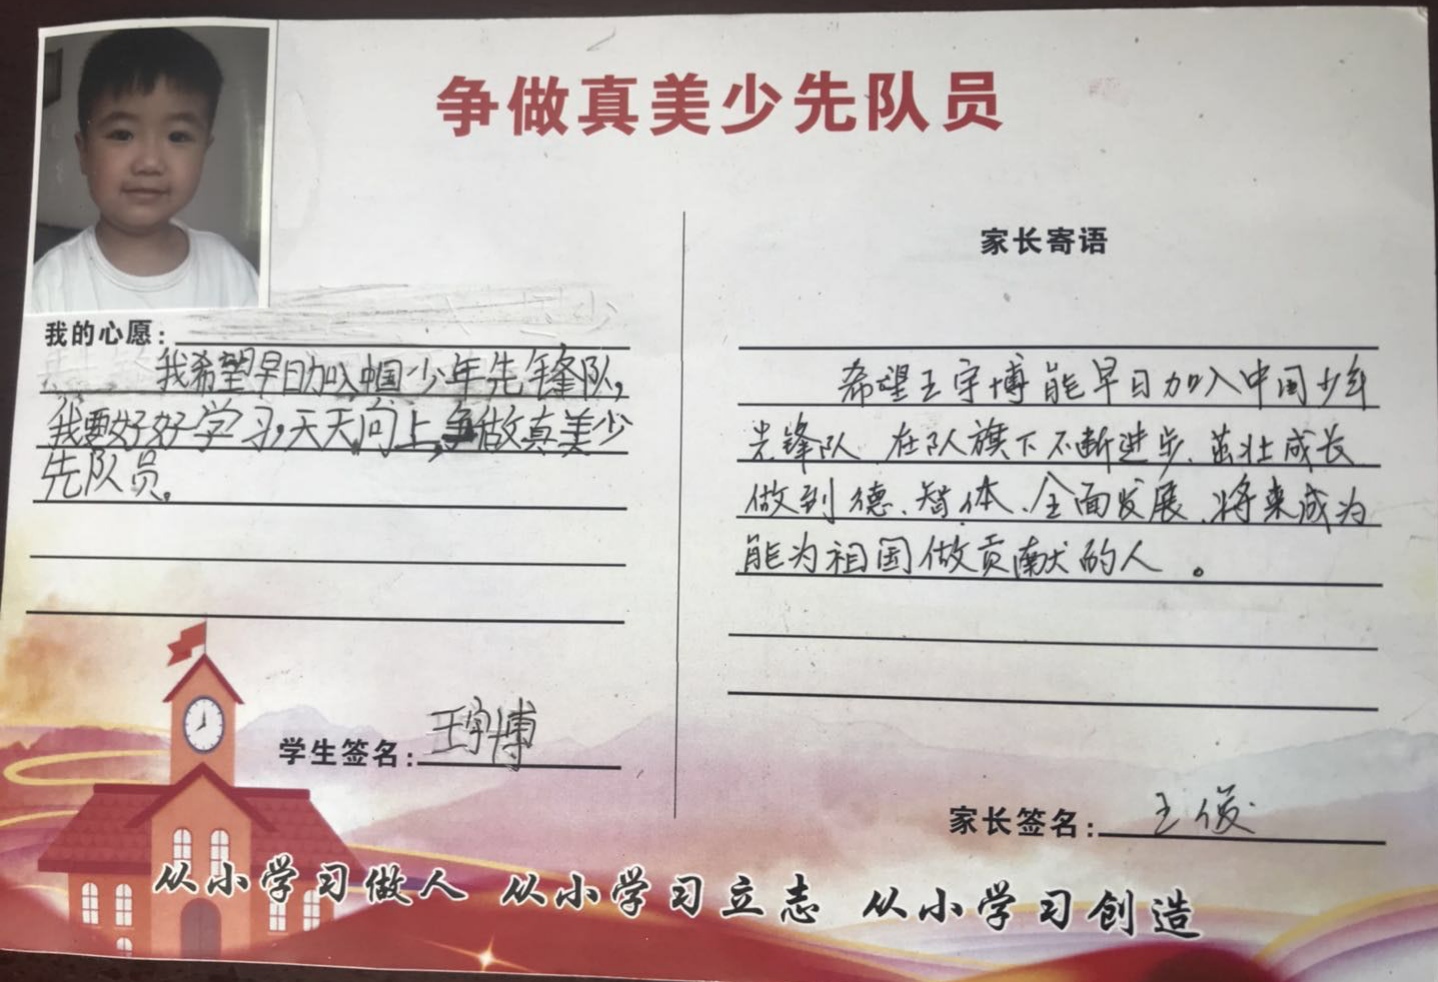 争做真美少先队员
我的心愿：
我希望早日加入中国少年先锋队，
我要好好学习，天天向上，争做真美少
先队员。
学生签名：王宇博
家长寄语
希望王宇博能早日加入中国少年
先锋队、在队旗下不断进步、茁壮成长
做到德、智、体、全面发展、将来成为
能为祖国做贡献的人。
家长签名：王俊
从小学习做人 从小学习立志 从小学习创造